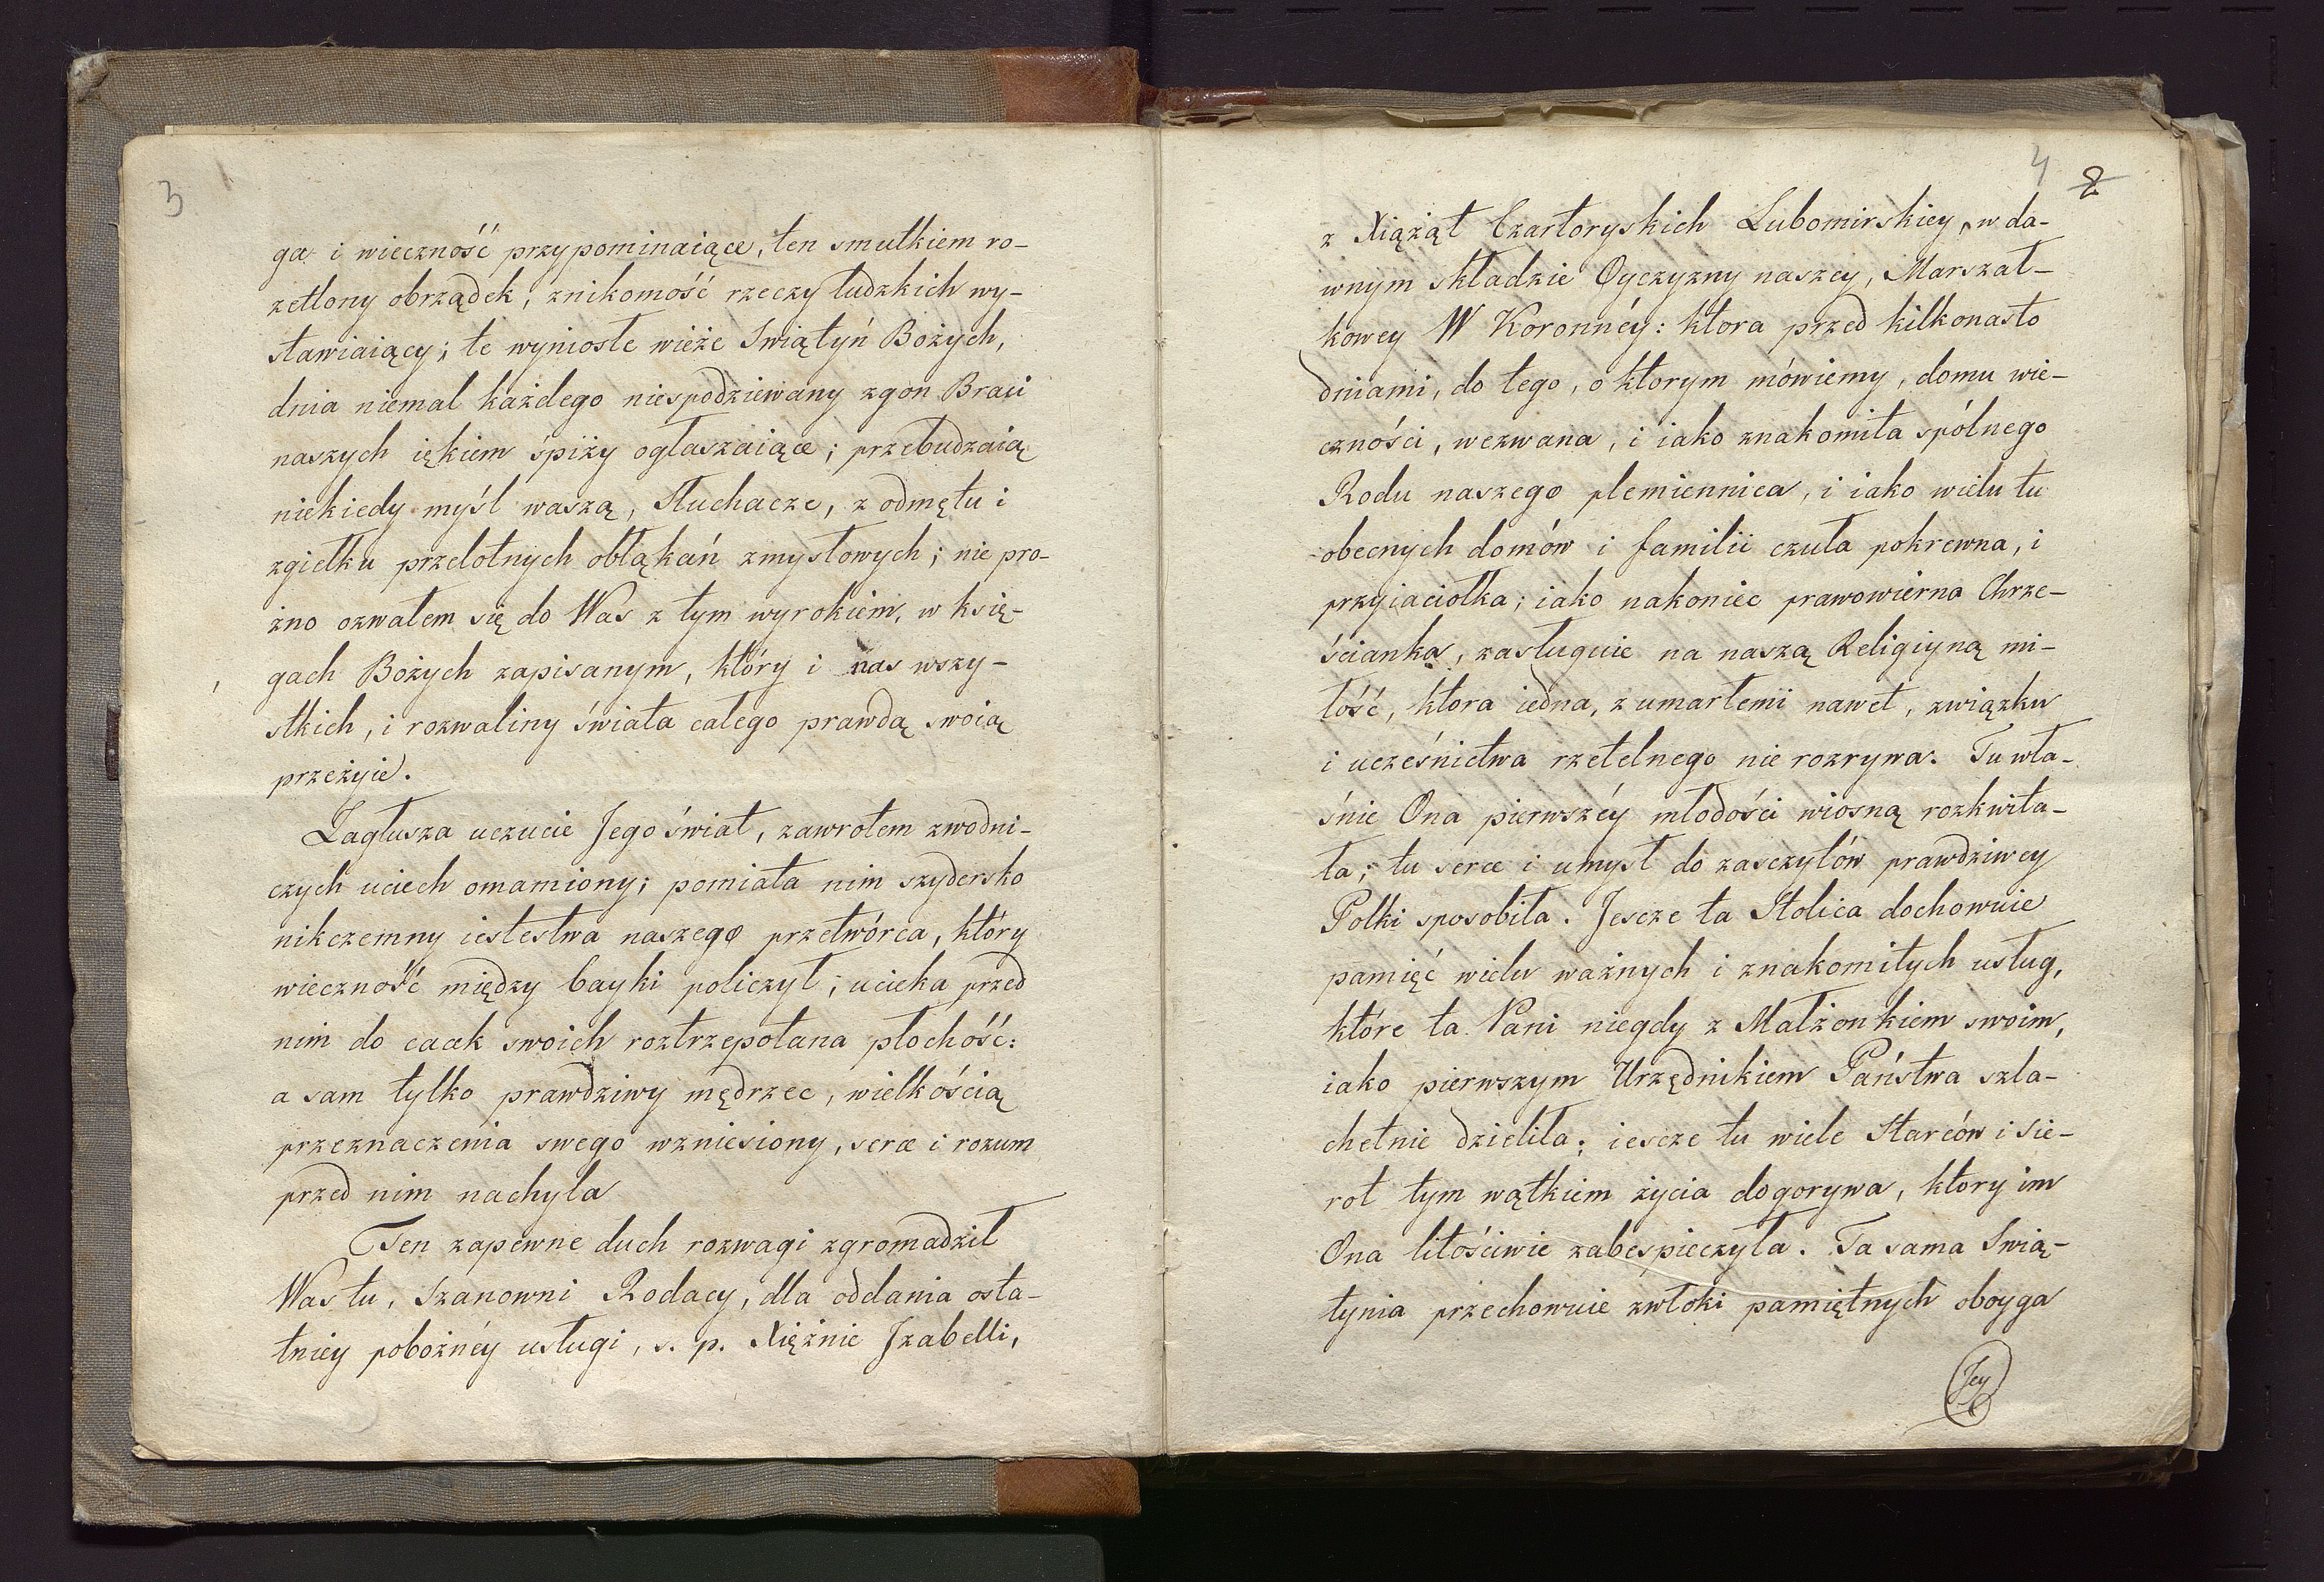 3
ga i wieczność przypominaiące, ten smutkiem ro-
zetlony obrządek, znikomość rzeczy ludzkich wy-
stawiaiący; te wyniosłe wieże Swiątyń Bożych,
dnia niemal każdego niespodziewany zgon Braci
naszych iękiem śpiży ogłaszaiące; przebudzaią
niekiedy myśl waszą, Słuchacze, z odmętu i
zgiełku przelotnych obłąkań zmysłowych; nie pro-
żno ozwałem się do Was z tym wyrokiem, w księ-
gach Bożych zapisanym, który i nas wszy-
stkich, i rozwaliny świata całego prawdą swoią
przeżyie.
Zagłusza uczucie Jego świat, zawrotem zwodni-
czych uciech omamiony; pomiata nim szydersko
nikczemny iestestwa naszego przetwórca, który
wieczność między bayki policzył; ucieka przed
nim do cacek swoich roztrzepotana płochość:
a sam tylko prawdziwy mędrzec, wielkością
przeznaczenia swego wzniesiony, serce i rozum
przed nim nachyla
Ten zapewne duch rozwagi zgromadził
Was tu, Szanowni Rodacy, dla oddania osta-
tniey pobożnéy usługi, s. p. Xiężnie Jzabelli,
4 2
z Xiążąt Czartoryskich Lubomirskiey, w da-
wnym składzie Oyczyzny naszey, Marszał-
kowey W Koronnéy: ktora przed kilkonasto
dniami, do tego, o ktorym mówiemy, domu wie-
czności, wezwana, i iako znakomita spólnego
Rodu naszego plemiennica, i iako wielu tu
obecnych domów i familii czuła pokrewna, i
przyiaciołka; iako nakoniec prawowierna Chrze-
ścianka, zasługuie na naszą Religiyną mi-
łość, ktora iedna, z umarłemi nawet, związku
i uczéśnictwa rzetelnego nie rozrywa. Tu wła-
śnie Ona pierwszéy młodości wiosną rozkwita-
ła; tu serce i umysł do zasczytów prawdziwey
Polki sposobiła. Jescze ta Stolica dochowuie
pamięć wielu ważnych i znakomitych usług,
które ta Pani niegdy z Małżonkiem swoim,
iako pierwszym Urzędnikiem Państwa szla-
chetnie dzieliła; iescze tu wiele Starców i Sie-
rot tym wątkiem życia dogorywa, ktory im
Ona litościwie zabespieczyła. Ta sama Swią-
tynia przechowuie zwłoki pamiętnych oboyga
Jey